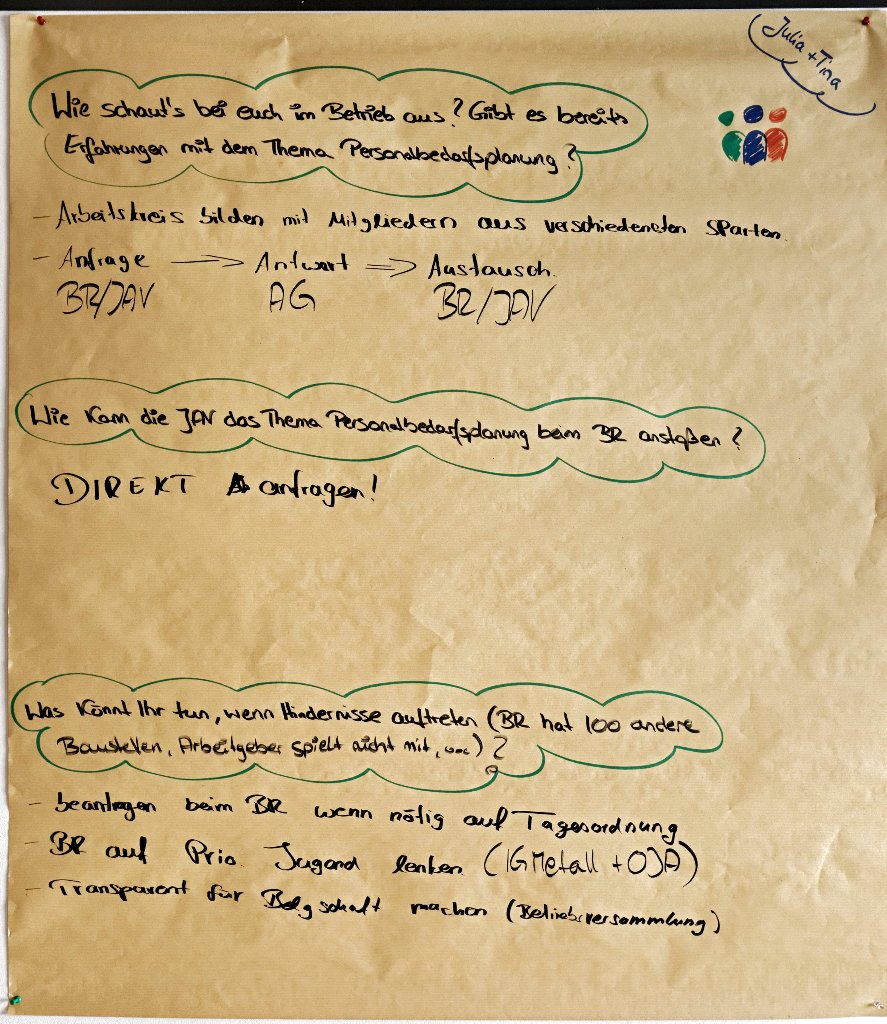 Julia + Tina
Wie schaut's bei euch im Betrieb aus? Gibt es bereits
Erfahrungen mit dem Thema Personalbedarfsplanung?
- Arbeitskreis bilden mit Mitgliedern aus verschiedeneten Sparten.
- Anfrage → Antwort ⇒ Austausch.
BR/JAV AG BR/JAV
Wie kann die JAV das Thema Personalbedarfsplanung beim BR anstoßen?
DIREKT anfragen!
Was könnt Ihr tun, wenn Hindernisse auftreten (BR hat 100 andere
Baustellen, Arbeitgeber spielt nicht mit, usw.)?
- beantragen beim BR wenn nötig auf Tagesordnung
- BR auf Prio. Jugend lenken (IG Metall + OJA)
- Transparent für Belgschaft machen (Betriebsversammlung)